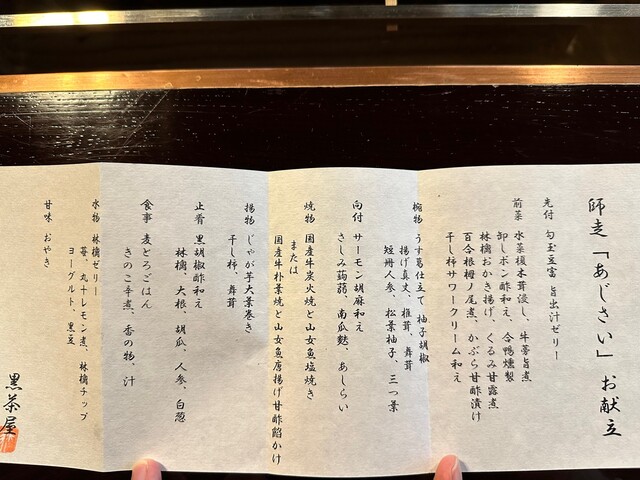 師走「あじさい」お献立
先付 勾玉豆富 旨出汁ゼリー
前菜 水菜榎木茸浸し、牛蒡旨煮
卸しポン酢和え、合鴨燻製
林檎おかき揚げ、くるみ甘露煮
百合根栂ノ尾煮、かぶら甘酢漬け
干し柿サワークリーム和え
椀物 うす葛仕立て 柚子胡椒
揚げ真丈、椎茸、舞茸
短冊人参、松葉柚子、三つ葉
向付 サーモン胡麻和え
さしみ蒟蒻、南瓜麩、あしらい
焼物 国産牛炭火焼と山女魚塩焼き
または
国産牛朴葉焼と山女魚唐揚げ甘酢餡かけ
揚物 じゃが芋大葉巻き
干し柿、舞茸
止肴 黒胡椒酢和え
林檎、大根、胡瓜、人参、白葱
食事 麦とろごはん
きのこ辛煮、香の物、汁
水物 林檎ゼリー
苺、丸十レモン煮、林檎チップ
ヨーグルト、黒豆
甘味 おやき
黒茶屋